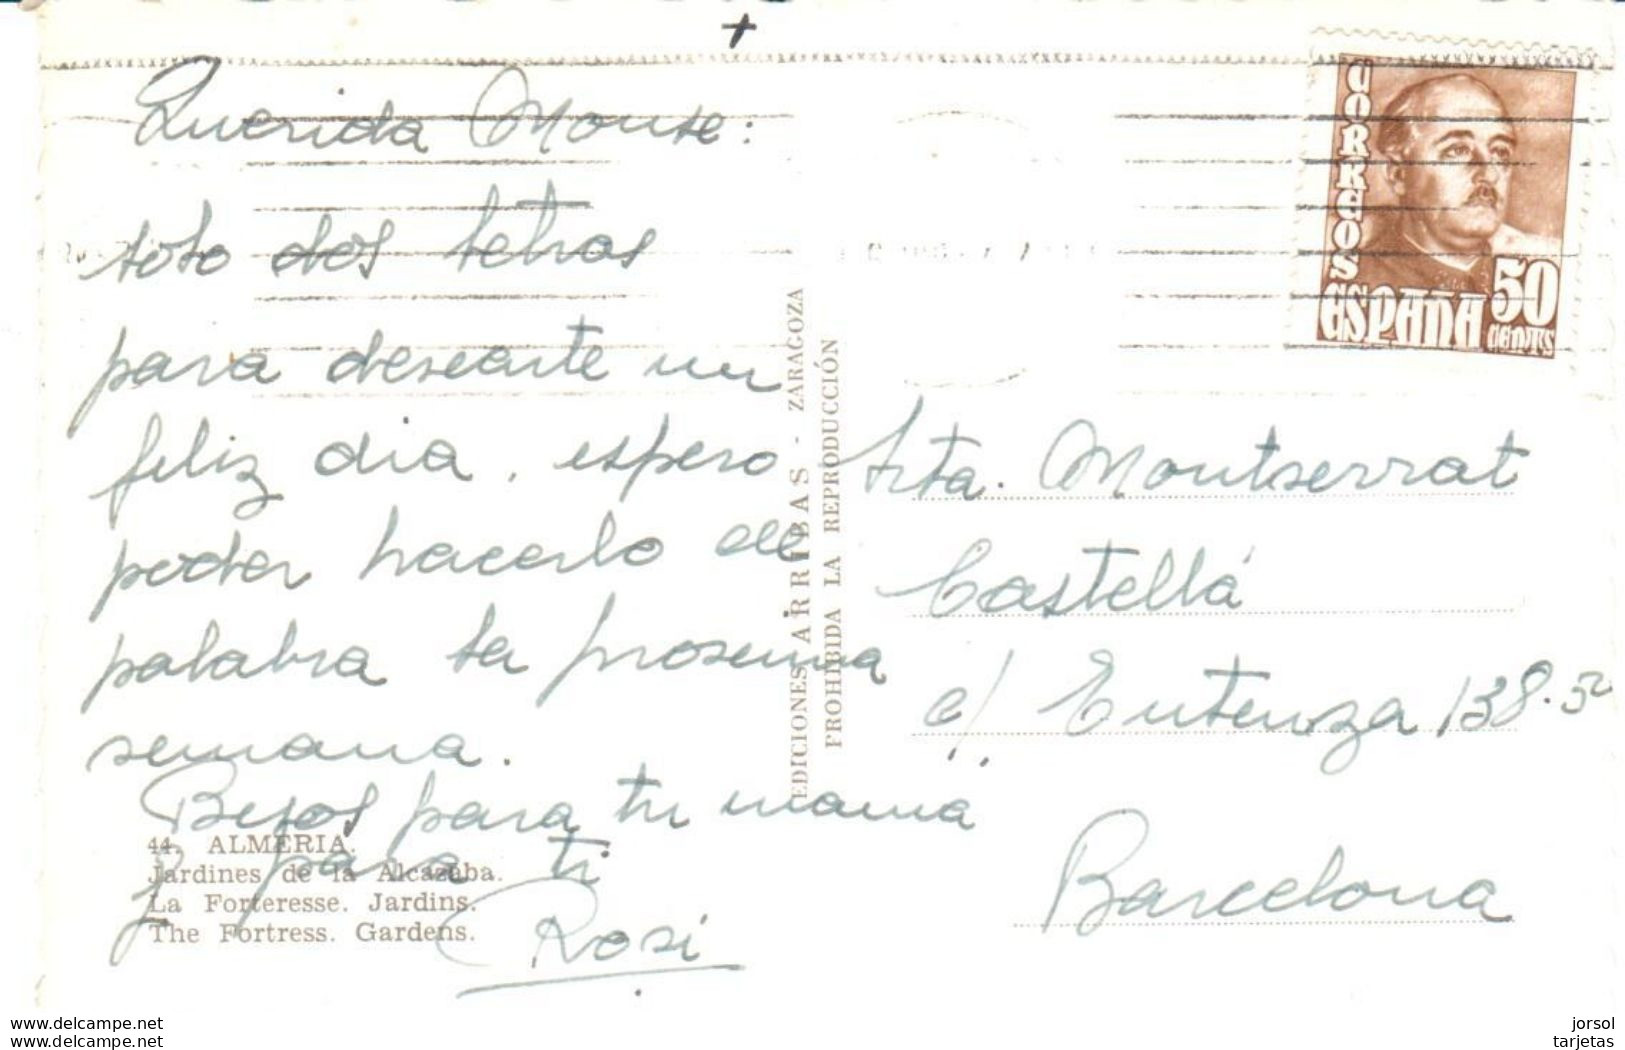 Querida Monse:
solo dos letras
para desearte un
feliz dia, espero
poder hacerlo de
palabra la proxima
semana.
Besos para tu mamá
y para ti
Rosi
44. ALMERIA.
Jardines de la Alcazaba.
La Forteresse. Jardins.
The Fortress. Gardens.
EDICIONES ARRIBAS - ZARAGOZA
PROHIBIDA LA REPRODUCCIÓN
CORREOS
ESPAÑA
50
CENTS
Srta. Montserrat
Castellá
c/ Entenza 138.
Barcelona
www.delcampe.net
www.delcampe.net
jorsol
tarjetas